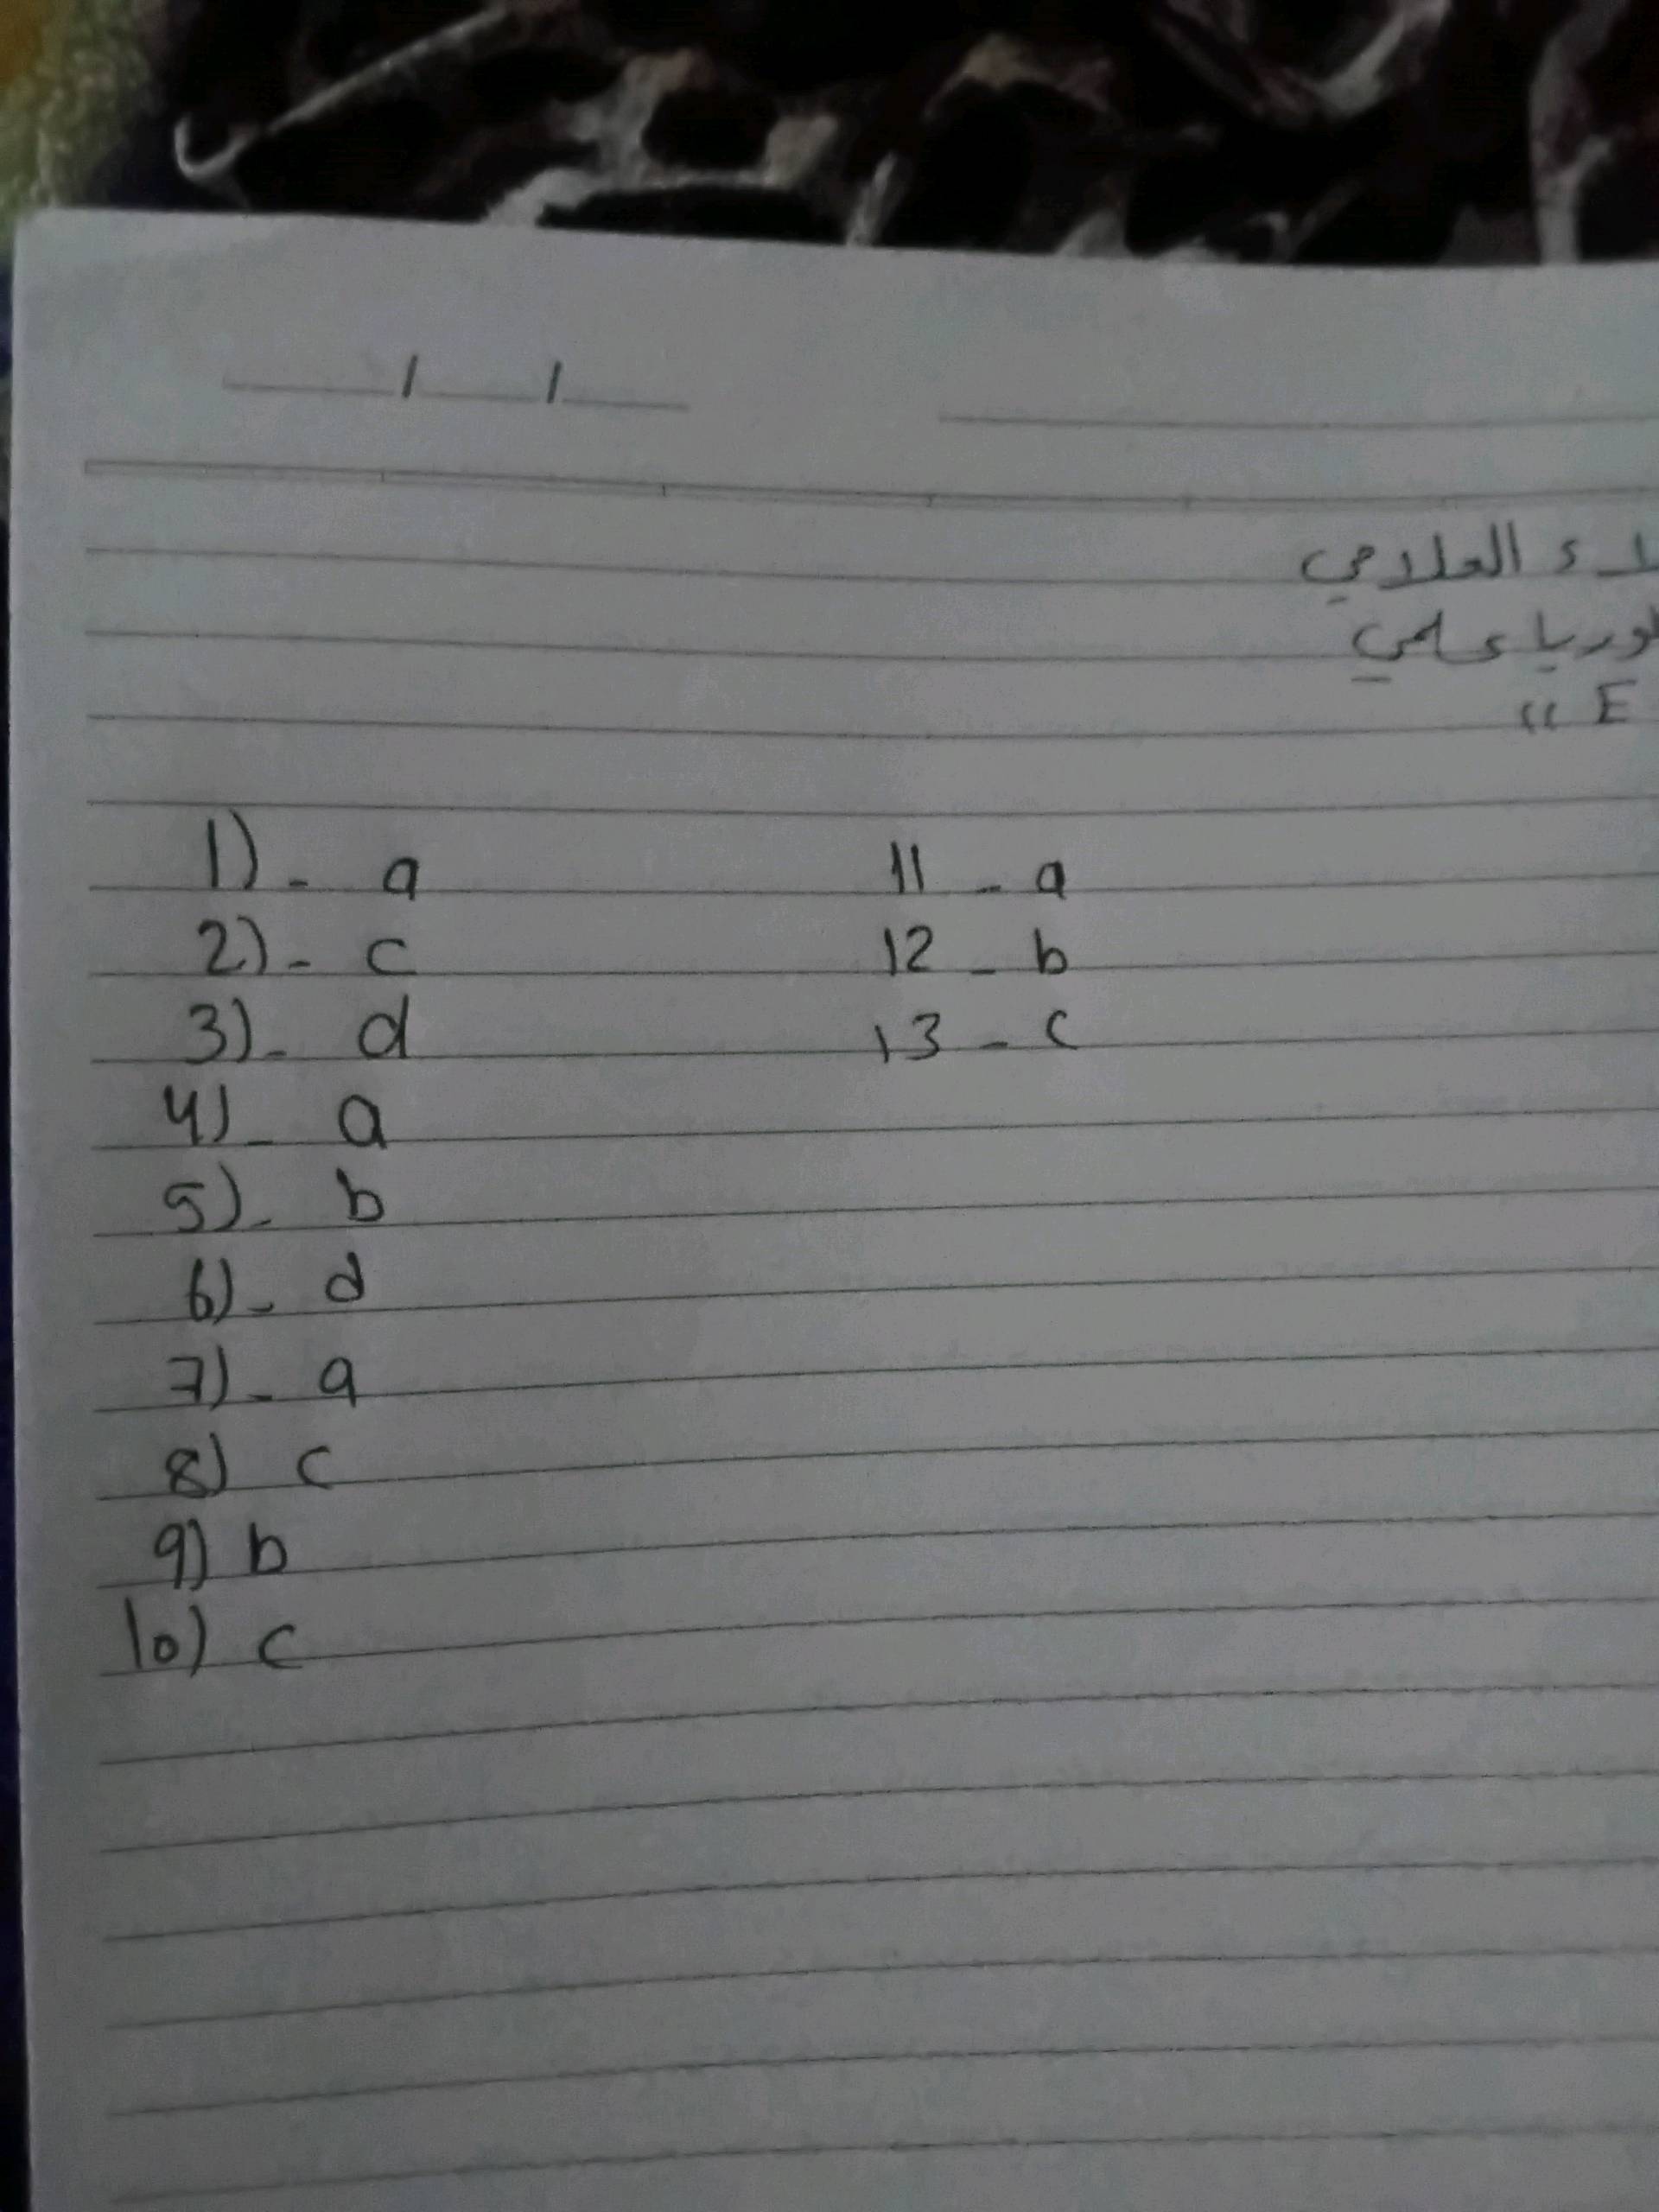 العلامي
علمي
E "
1) - a
2) - c
3) - d
4) - a
5) - b
6) - d
7) - a
8) c
9) b
10) c
11 - a
12 - b
13 - c